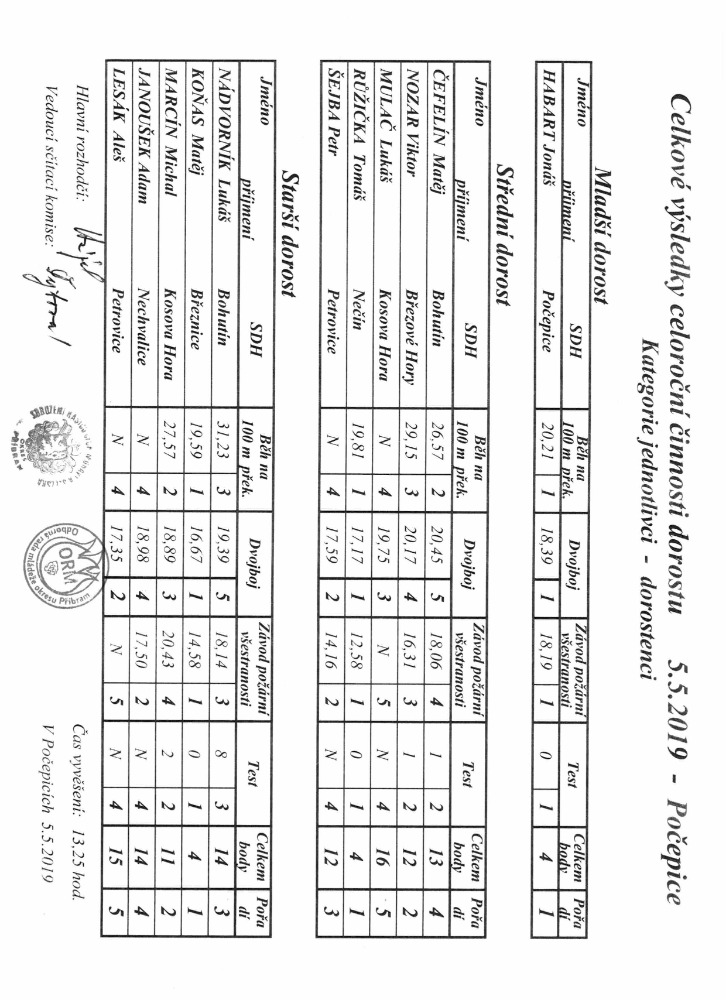 Celkové výsledky celoroční činnosti dorostu 5.5.2019 - Počepice
Kategorie jednotlivci - dorostenci
Mladší dorost
Jméno příjmení SDH Běh na 100 m přek. Dvojboj Závod požární všestranosti Test Celkem body Pořa dí
HABART Jonáš Počepice 20,21 1 18,39 1 18,19 1 0 1 4 1
Střední dorost
Jméno příjmení SDH Běh na 100 m přek. Dvojboj Závod požární všestranosti Test Celkem body Pořa dí
ČEFELÍN Matěj Bohutín 26,57 2 20,45 5 18,06 4 1 2 13 4
NOZAR Viktor Březové Hory 29,15 3 20,17 4 16,31 3 1 2 12 2
MULAČ Lukáš Kosova Hora N 4 19,75 3 N 5 N 4 16 5
RŮŽIČKA Tomáš Nečín 19,81 1 17,17 1 12,58 1 0 1 4 1
ŠEJBA Petr Petrovice N 4 17,59 2 14,16 2 N 4 12 3
Starší dorost
Jméno příjmení SDH Běh na 100 m přek. Dvojboj Závod požární všestranosti Test Celkem body Pořa dí
NÁDVORNÍK Lukáš Bohutín 31,23 3 19,39 5 18,14 3 8 3 14 3
KOŇAS Matěj Březnice 19,59 1 16,67 1 14,58 1 0 1 4 1
MARCÍN Michal Kosova Hora 27,57 2 18,89 3 20,43 4 2 2 11 2
JANOUŠEK Adam Nechvalice N 4 18,98 4 17,50 2 N 4 14 4
LESÁK Aleš Petrovice N 4 17,35 2 N 5 N 4 15 5
Hlavní rozhodčí: Čas vyvěšení: 13.25 hod.
Vedoucí sčítací komise: V Počepicích 5.5.2019
Odborná rada mládeže okresu Příbram
ORM